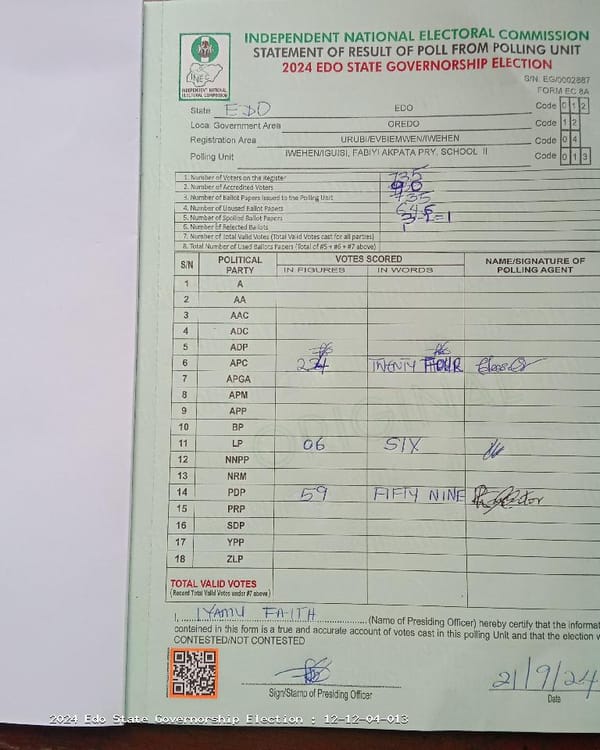 INDEPENDENT NATIONAL ELECTORAL COMMISSION
STATEMENT OF RESULT OF POLL FROM POLLING UNIT
2024 EDO STATE GOVERNORSHIP ELECTION
INEC
INDEPENDENT NATIONAL ELECTORAL COMMISSION
S/N: EG/0002887
FORM EC 8A
State EDO EDO Code 012
Local Government Area OREDO Code 12
Registration Area URUBI/EVBIEMWEN/IWEHEN Code 04
Polling Unit IWEHEN/IGUISI, FABIYI AKPATA PRY. SCHOOL II Code 013
1. Number of Voters on the Register 735
2. Number of Accredited Voters 90
3. Number of Ballot Papers Issued to the Polling Unit 735
4. Number of Unused Ballot Papers
5. Number of Spoiled Ballot Papers
6. Number of Rejected Ballots 1
7. Number of Total Valid Votes (Total Valid Votes cast for all parties)
8. Total Number of Used Ballots Papers (Total of #5 + #6 + #7 above)
S/N POLITICAL PARTY VOTES SCORED NAME/SIGNATURE OF POLLING AGENT
IN FIGURES IN WORDS
1 A
2 AA
3 AAC
4 ADC
5 ADP
6 APC TWENTY FOUR
7 APGA
8 APM
9 APP
10 BP
11 LP 06 SIX
12 NNPP
13 NRM
14 PDP 59 FIFTY NINE
15 PRP
16 SDP
17 YPP
18 ZLP
TOTAL VALID VOTES
(Record Total Valid Votes under #7 above)
I, IYAMU FAITH (Name of Presiding Officer) hereby certify that the
contained in this form is a true and accurate account of votes cast in this polling Unit and that the election
CONTESTED/NOT CONTESTED
21/9/24
Sign/Stamp of Presiding Officer Date
2024 Edo State Governorship Election : 12-12-04-013